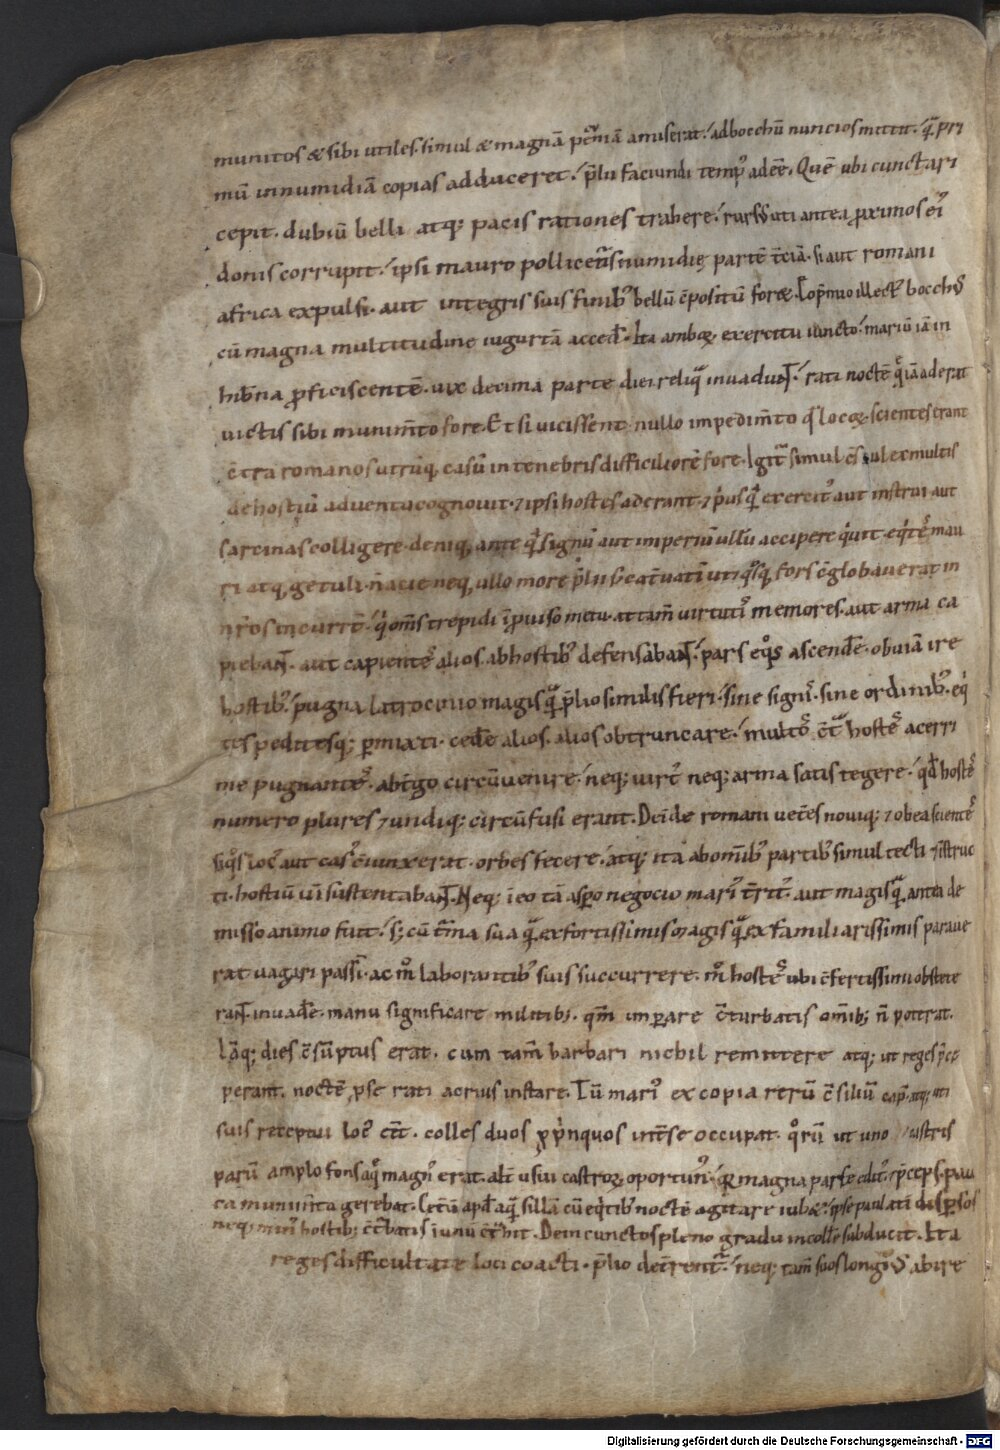 munitos & sibi utiles. simul & magnā pecūiā amiserat. ad bocchū nuncios mittit. q̄ pri
mū in numidiā copias adduceret. p̄lii faciundi temp' adeē. Quē ubi cunctari
cepit. dubiū belli atq; pacis rationes trahere. rursus uti antea ꝓximos ei'
donis corrupit. ipsi mauro pollicet' numidię partē t̄ciā. si aut romani
africa expulsi. aut integris suis finib' bellū c̄positū for&.
cū magna multitudine iugurtā acced̄. Ita amboꝝ exercitu iuncto. mariū iā in
hib̄na ꝓficiscentē. uix decima parte diei reliq̄ inuadunt. rati noctē q̄ iā aderat
uictis sibi munim̄to fore. Et si uicissent nullo impedim̄to q̄ locoꝝ scientes erant
c̄tra romanos utrūq, casū in tenebris difficiliorē fore. Igit' simul c̄sul ex multis
de hostiū aduentu cognouit. & ipsi hostes aderant. & p'usq̄ exercit' aut instrui aut
sarcinas colligere. deniq, ante q̄ signū aut imperiū ullū accipere q'uit. eq'tes mau
ri atq, getuli. n̄ acie neq, ullo more p̄lii sed cat̄uatī uti q'sq, fors c̄globauerat in
nr̄os incurrt̄. q' om̄s trepidi īprouiso metu. at tam̄ uirtutis memores. aut arma ca
piebant. aut capientes alios ab hostib' defensabant. pars eq'os ascend̄e. obuiā ire
hostib'. pugna latrocinio magisq̄ p̄lio similis fieri. sine signis. sine ordinib'. eq'
tes peditesq; p̄mixti. ced̄e alios. alios obtruncare. multos c̄t̄ hostes acerri
me pugnantes. ab t̄go circūuenire. neq; uirt' neq; arma satis tegere. q̄d hostes
numero plures & undiq; circūfusi erant. Deīde romani uet̄es nouiq; & ob ea scientes
siq's loc' aut cas' c̄iunxerat. orbes fecere. atq; ita ab om̄ib' partib' simul tecti & īstruc
ti. hostiū uī sustentabant. Neq; ī eo tā asꝑo negocio mari' t̄rit'. aut magisq̄ antea de
misso animo fuit. s; cū t̄ma sua q̄ ex fortissimis magisq̄ ex familiarissimis paraue
rat uagari passī. ac m̊ laborantib' suis succurrere. m̊ hostes ubi c̄fertissimi obstite
rant. inuad̄e. manu significare militib;. qm̄ imꝑare c̄turbatis om̄ib; n̄ poterat.
Iāq; dies c̄sūptus erat. cum tam̄ barbari nichil remittere atq; ut reges p̄ce
perant. noctē p̄ se rati acrius instare. Tū mari' ex copia rerū c̄siliū cap̄. atq; uti
suis receptui loc' eēt. colles duos ꝓp̄nquos int̄ se occupat. q'rū ut uno castris
parū amplo fons aq̄ magn' erat. alt̄ usui castroꝝ oportun'. q̄ magna parte edit' & p̄ceps. pau
ca munim̄ta gerebat. Cet̄ū apd̄ aq̄ sillā cū eq'tib' noctē agitare iub&. ipse paulati disꝑsos
neq; min' hostib; c̄t̄batis ī unū c̄t̄hit. Dein cunctos pleno gradu in coll̄e subducit. Ita
reges difficultate loci coacti. p̄lio det̄rent'. neq; tam̄ suos longi' abire
Digitalisierung gefördert durch die Deutsche Forschungsgemeinschaft - DFG